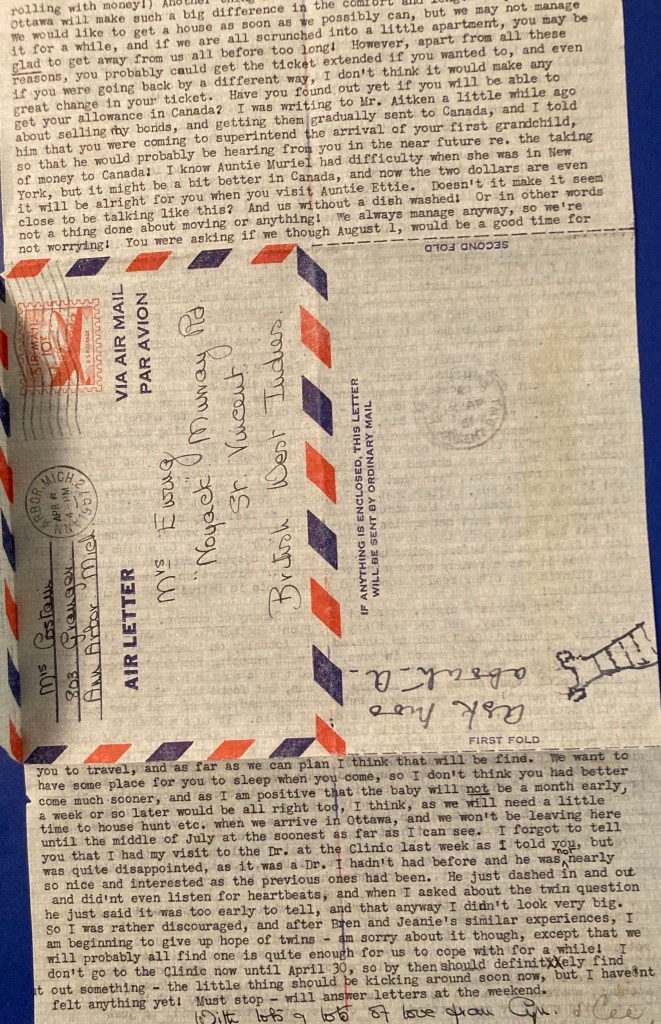 rolling with money!) Another thing
Ottawa will make such a big difference in the comfort and
We would like to get a house as soon as we possibly can, but we may not manage
it for a while, and if we are all scrunched into a little apartment, you may be
glad to get away from us all before too long! However, apart from all these
reasons, you probably could get the ticket extended if you wanted to, and even
if you were going back by a different way, I don't think it would make any
great change in your ticket. Have you found out yet if you will be able to
get your allowance in Canada? I was writing to Mr. Aitken a little while ago
about selling my bonds, and getting them gradually sent to Canada, and I told
him that you were coming to superintend the arrival of your first grandchild,
so that he would probably be hearing from you in the near future re. the taking
of money to Canada! I know Auntie Muriel had difficulty when she was in New
York, but it might be a bit better in Canada, and now the two dollars are even
it will be alright for you when you visit Auntie Ettie. Doesn't it make it seem
close to be talking like this? And us without a dish washed! Or in other words
not a thing done about moving or anything! We always manage anyway, so we're
not worrying! You were asking if we though August 1, would be a good time for
SECOND FOLD
AIR MAIL
10¢
U.S. POSTAGE
VIA AIR MAIL
PAR AVION
ANN ARBOR, MICH.
APR
PM
Mrs Costain
803 Granger
Ann Arbor Mich
AIR LETTER
Mrs Ewing
"Noyack" Murray Rd
St. Vincent
British West Indies.
IF ANYTHING IS ENCLOSED, THIS LETTER
WILL BE SENT BY ORDINARY MAIL
ask
about
FIRST FOLD
you to travel, and as far as we can plan I think that will be fine. We want to
have some place for you to sleep when you come, so I don't think you had better
come much sooner, and as I am positive that the baby will not be a month early,
a week or so later would be all right too, I think, as we will need a little
time to house hunt etc. when we arrive in Ottawa, and we won't be leaving here
until the middle of July at the soonest as far as I can see. I forgot to tell
you that I had my visit to the Dr. at the Clinic last week as I told you, but
was quite disappointed, as it was a Dr. I hadn't had before and he was not nearly
so nice and interested as the previous ones had been. He just dashed in and out
and did'nt even listen for heartbeats, and when I asked about the twin question
he just said it was too early to tell, and that anyway I didn't look very big.
So I was rather discouraged, and after Bren and Jeanie's similar experiences, I
am beginning to give up hope of twins - am sorry about it though, except that we
will probably all find one is quite enough for us to cope with for a while! I
don't go to the Clinic now until April 30, so by then should definitxxely find
out something - the little thing should be kicking around soon now, but I have'nt
felt anything yet! Must stop - will answer letters at the weekend.
With lots & lots of love from Cyn. & Cee